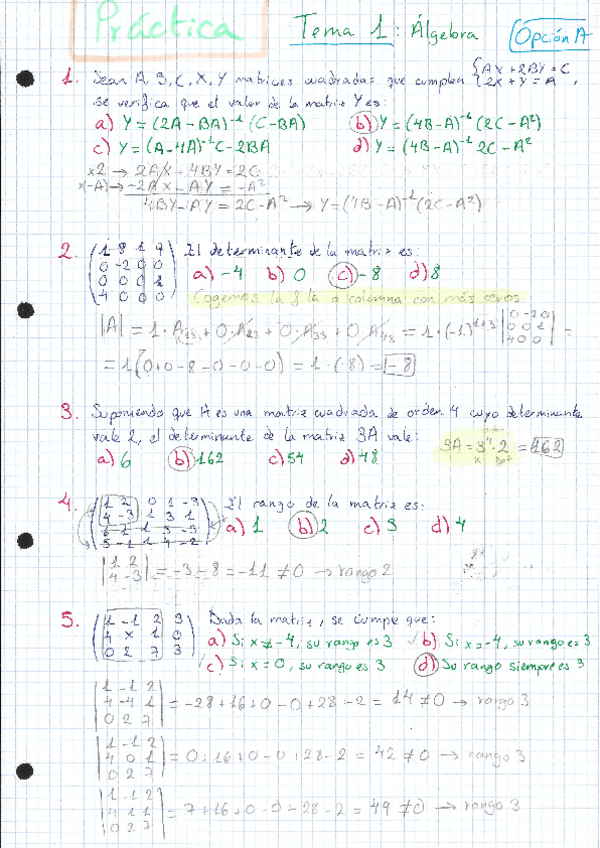 Práctica
Tema 1: Álgebra
Opción A
1. Sean A, B, C, X, Y matrices cuadradas que cumplen { AX + 2BY = C
2X + Y = A ,
se verifica que el valor de la matriz Y es:
a) Y = (2A - BA)⁻¹ (C - BA) b) Y = (4B - A)⁻¹ (2C - A²)
c) Y = (A - 4A)⁻¹ C - 2BA d) Y = (4B - A)⁻¹ 2C - A²
x2 → 2AX + 4BY = 2C
x(-A) → -2AX - AY = -A²
4BY - AY = 2C - A² → Y = (4B - A)⁻¹ (2C - A²)
2. El determinante de la matriz es:
0 -2 0 0
0 0 0 1
4 0 0 0
a) -4 b) 0 c) -8 d) 8
Cogemos la f la o columna con más ceros
= 1(0+0-8-0-0-0) = 1·(-8) = -8
3. Suponiendo que A es una matriz cuadrada de orden 4 cuyo determinante
vale 2, el determinante de la matriz 3A vale:
3A = 3⁴ · 2 = 162
a) 6 b) 162 c) 54 d) 48
4. El rango de la matriz es:
1 2 0 1 -3
4 -3 1 3 1
a) 1 b) 2 c) 3 d) 4
|1 2
4 -3| = -3 - 8 = -11 ≠ 0 → rango 2
5. Dada la matriz, se cumple que:
1 -1 2 3
4 x 1 0
0 2 7 3
a) Si x ≠ -4, su rango es 3 b) Si x = -4, su rango es 3
c) Si x = 0, su rango es 3 d) Su rango siempre es 3
|1 -1 2
4 -4 1
0 2 7| = -28 + 16 + 0 - 0 + 28 - 2 = 14 ≠ 0 → rango 3
|1 -1 2
4 0 1
0 2 7| = 0 + 16 + 0 - 0 + 28 - 2 = 42 ≠ 0 → rango 3
|1 -1 2
4 1 1
0 2 7| = 7 + 16 + 0 - 0 + 28 - 2 = 49 ≠ 0 → rango 3